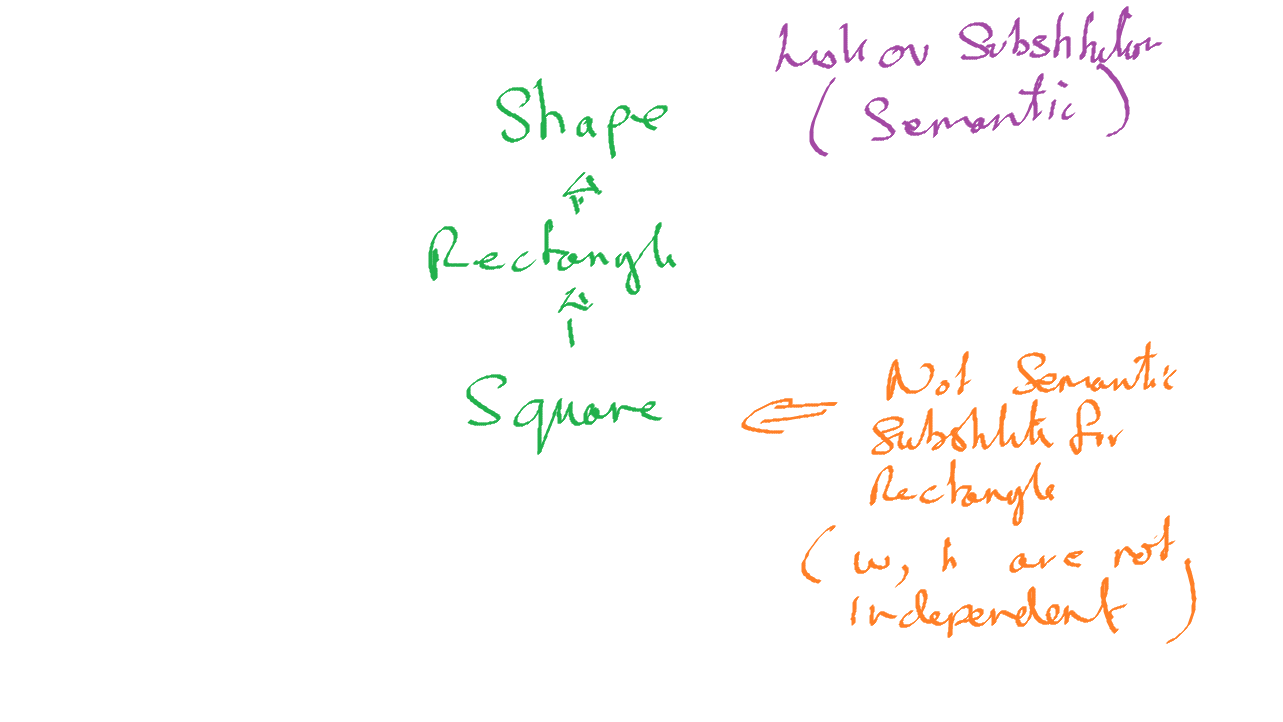 Liskov Substitution
( Semantic )
Shape
Rectangle
Square
Not Semantic
Substitute for
Rectangle
( w, h are not
independent )